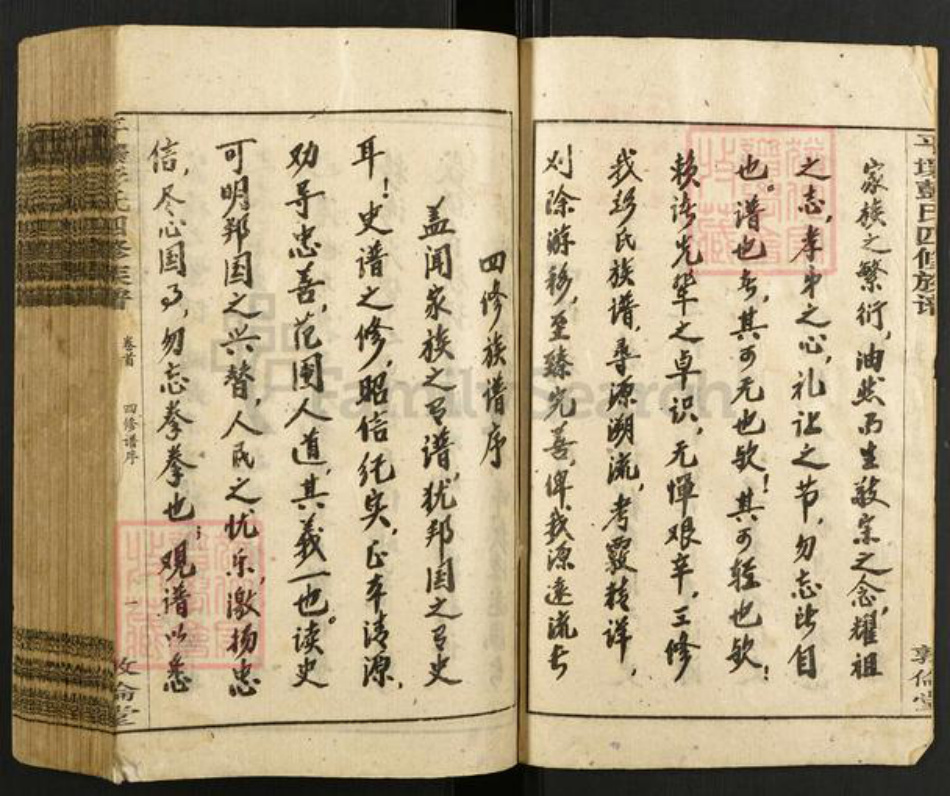 彭氏四修族谱 敦伦堂
家族之繁衍，油然而生敬宗之念，耀祖
之志，孝弟之心，礼让之节，勿忘此自
也。谱也者，其可无也欤！其可轻也欤！
赖诸先辈之卓识，无惮艰辛，三修
我彭氏族谱，寻源溯流，考覈精详，
刈除游移，至臻完善，俾我源远流长
四修族谱序
盖闻家族之有谱，犹邦国之有史
耳！史谱之修，昭信纪实，正本清源，
劝导忠善，范围人道，其义一也。读史
可明邦国之兴替，人民之忧乐，激扬忠
信，尽心国事，勿忘拳拳也；观谱以悉
氏四修族谱 卷首 四修谱序 一 敦伦堂
FamilySearch